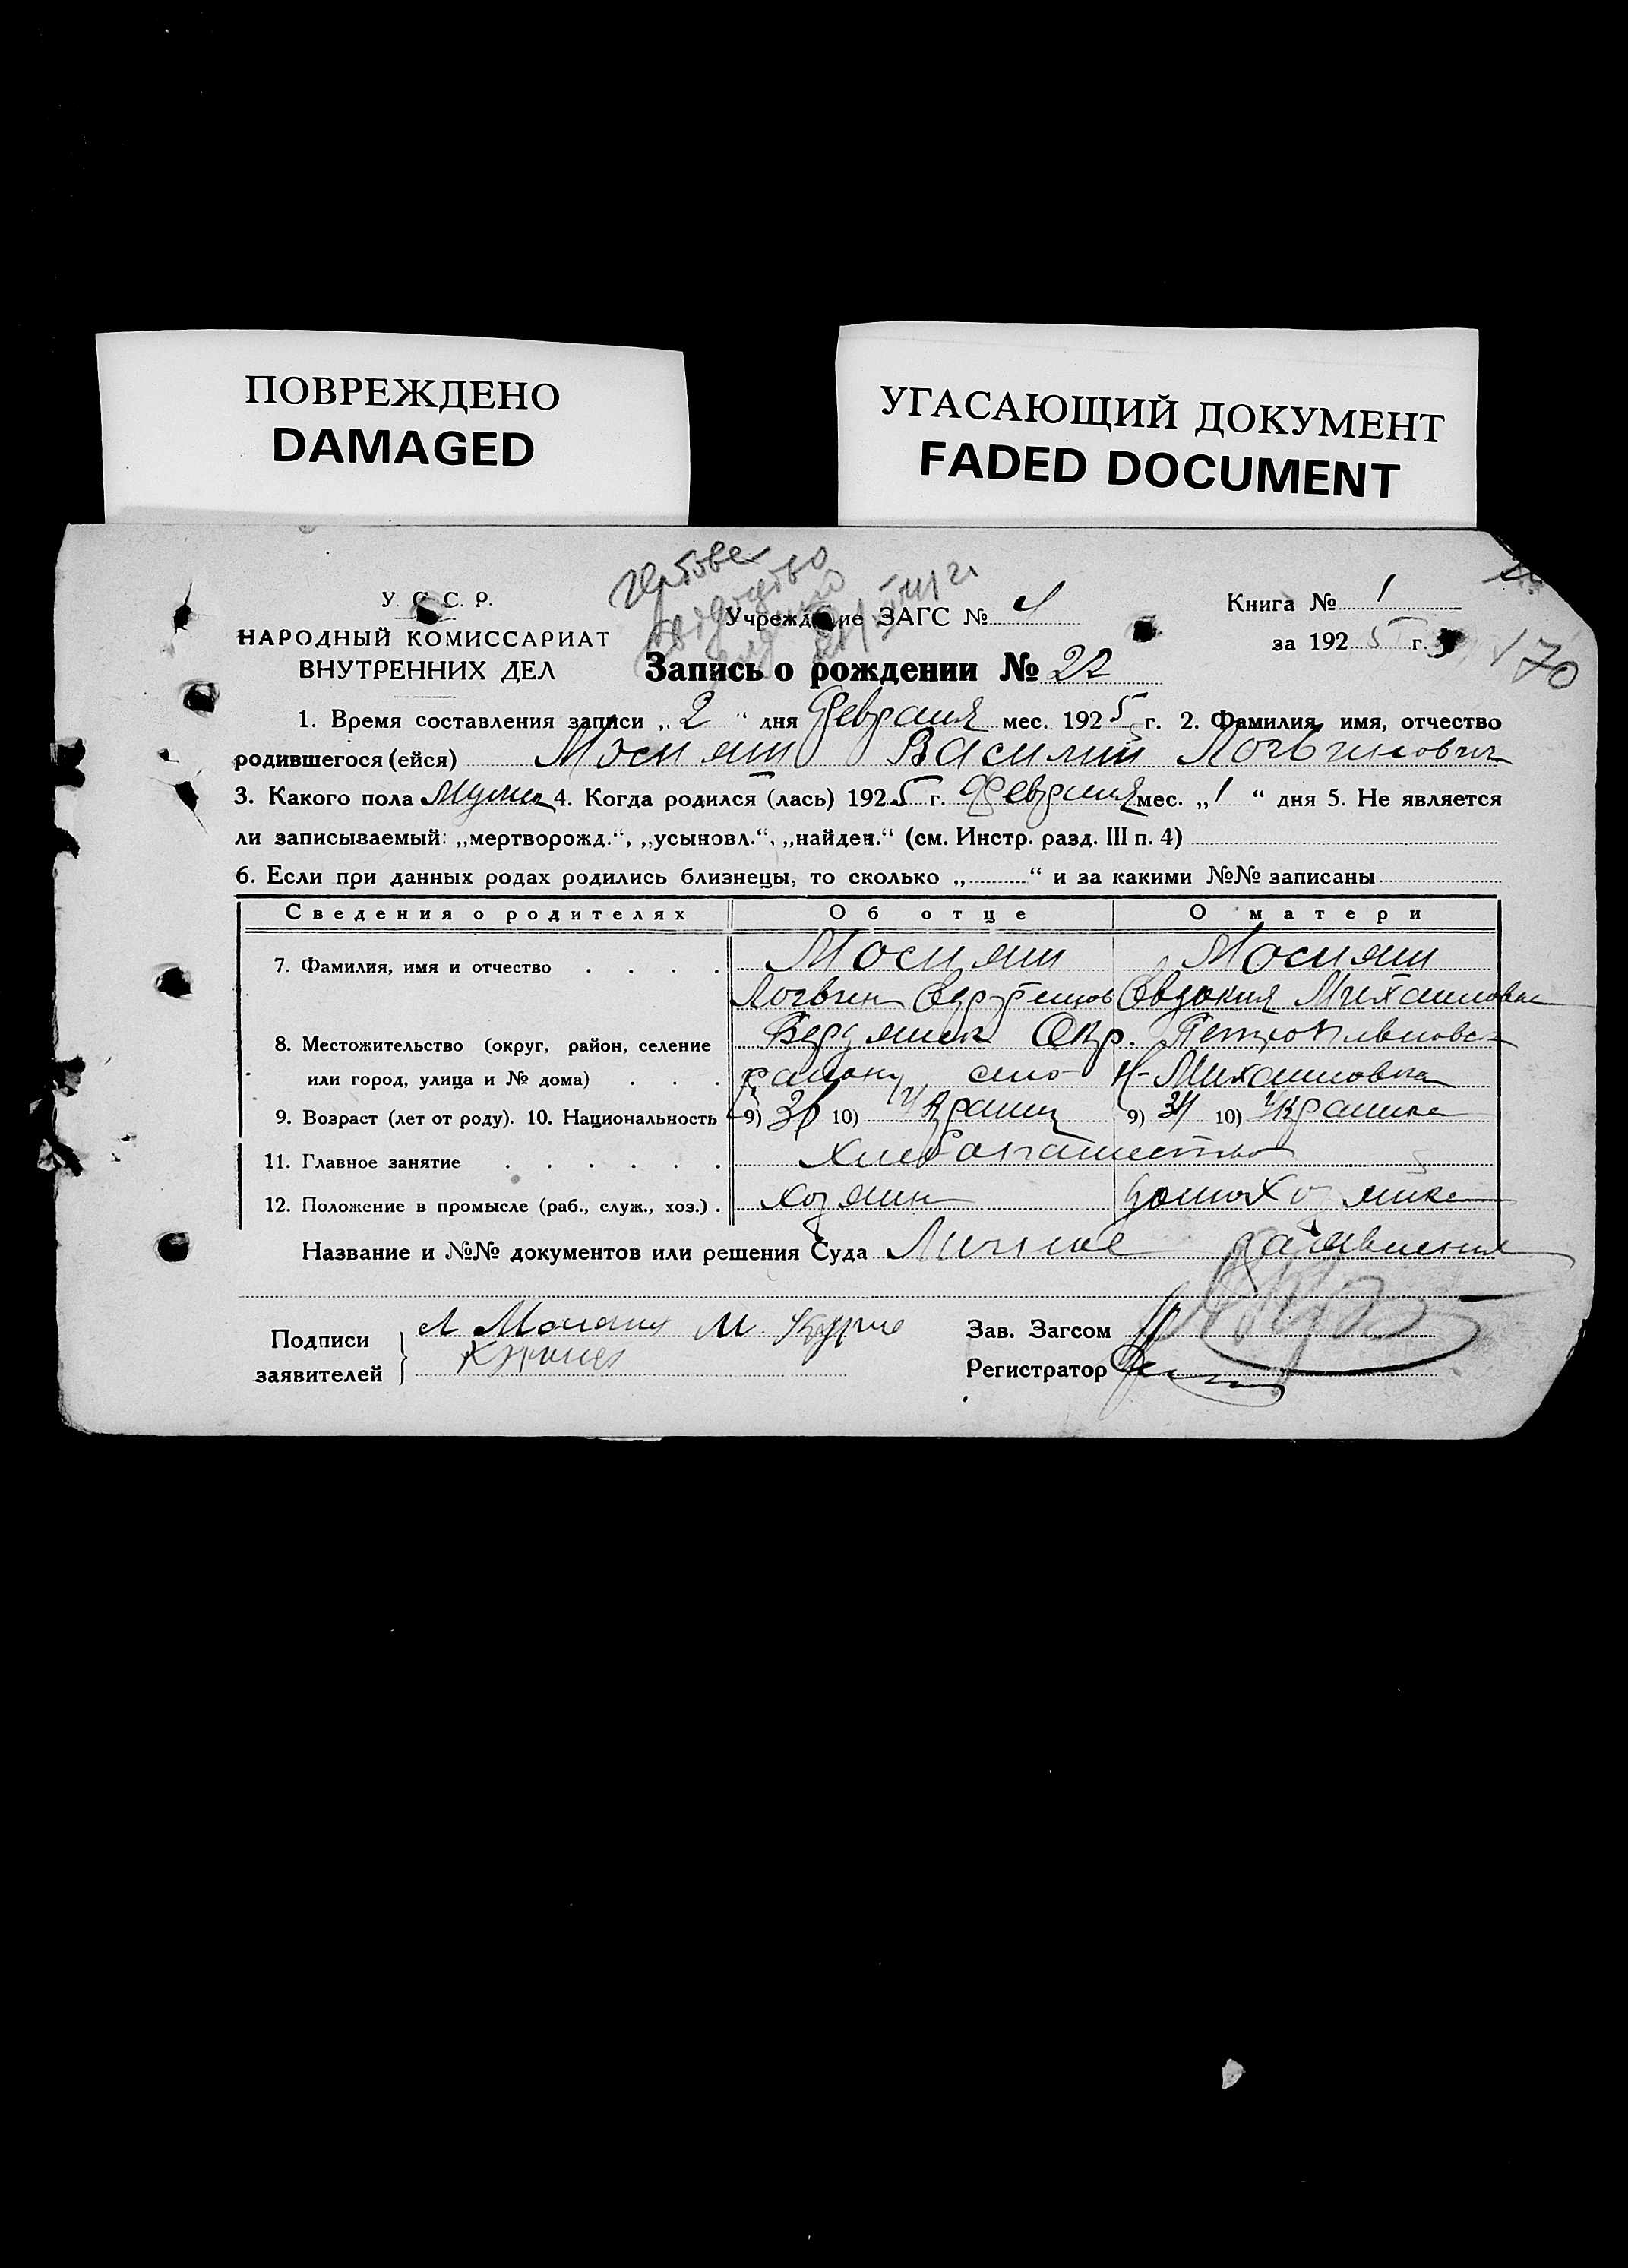 ПОВРЕЖДЕНО
DAMAGED
УГАСАЮЩИЙ ДОКУМЕНТ
FADED DOCUMENT
У. С. С. Р.
НАРОДНЫЙ КОМИССАРИАТ
ВНУТРЕННИХ ДЕЛ
Учреждение ЗАГС №
Книга № 1
за 1925 г.
170
Запись о рождении № 22
1. Время составления записи „2“ дня Февраля мес. 1925 г. 2. Фамилия, имя, отчество
родившегося (ейся) Мосияш Василий Логвинович
3. Какого пола Мужск 4. Когда родился (лась) 1925 г. Февраля мес. „1“ дня 5. Не является
ли записываемый: „мертворожд.“, „усыновл.“, „найден.“ (см. Инстр. разд. III п. 4)
6. Если при данных родах родились близнецы, то сколько „ “ и за какими №№ записаны
Сведения о родителях Об отце О матери
7. Фамилия, имя и отчество Мосияш Мосияш
Логвин Евдокия Михайловна
8. Местожительство (округ, район, селение Бердянск Окр.
или город, улица и № дома) району село Н-Михайловка
9. Возраст (лет от роду). 10. Национальность 9) 10) Украин 9) 34 10) Украинка
11. Главное занятие Хлебопашество
12. Положение в промысле (раб., служ., хоз.) Хозяин домохозяйка
Название и №№ документов или решения Суда Личное заявление
Подписи
заявителей
Зав. Загсом
Регистратор